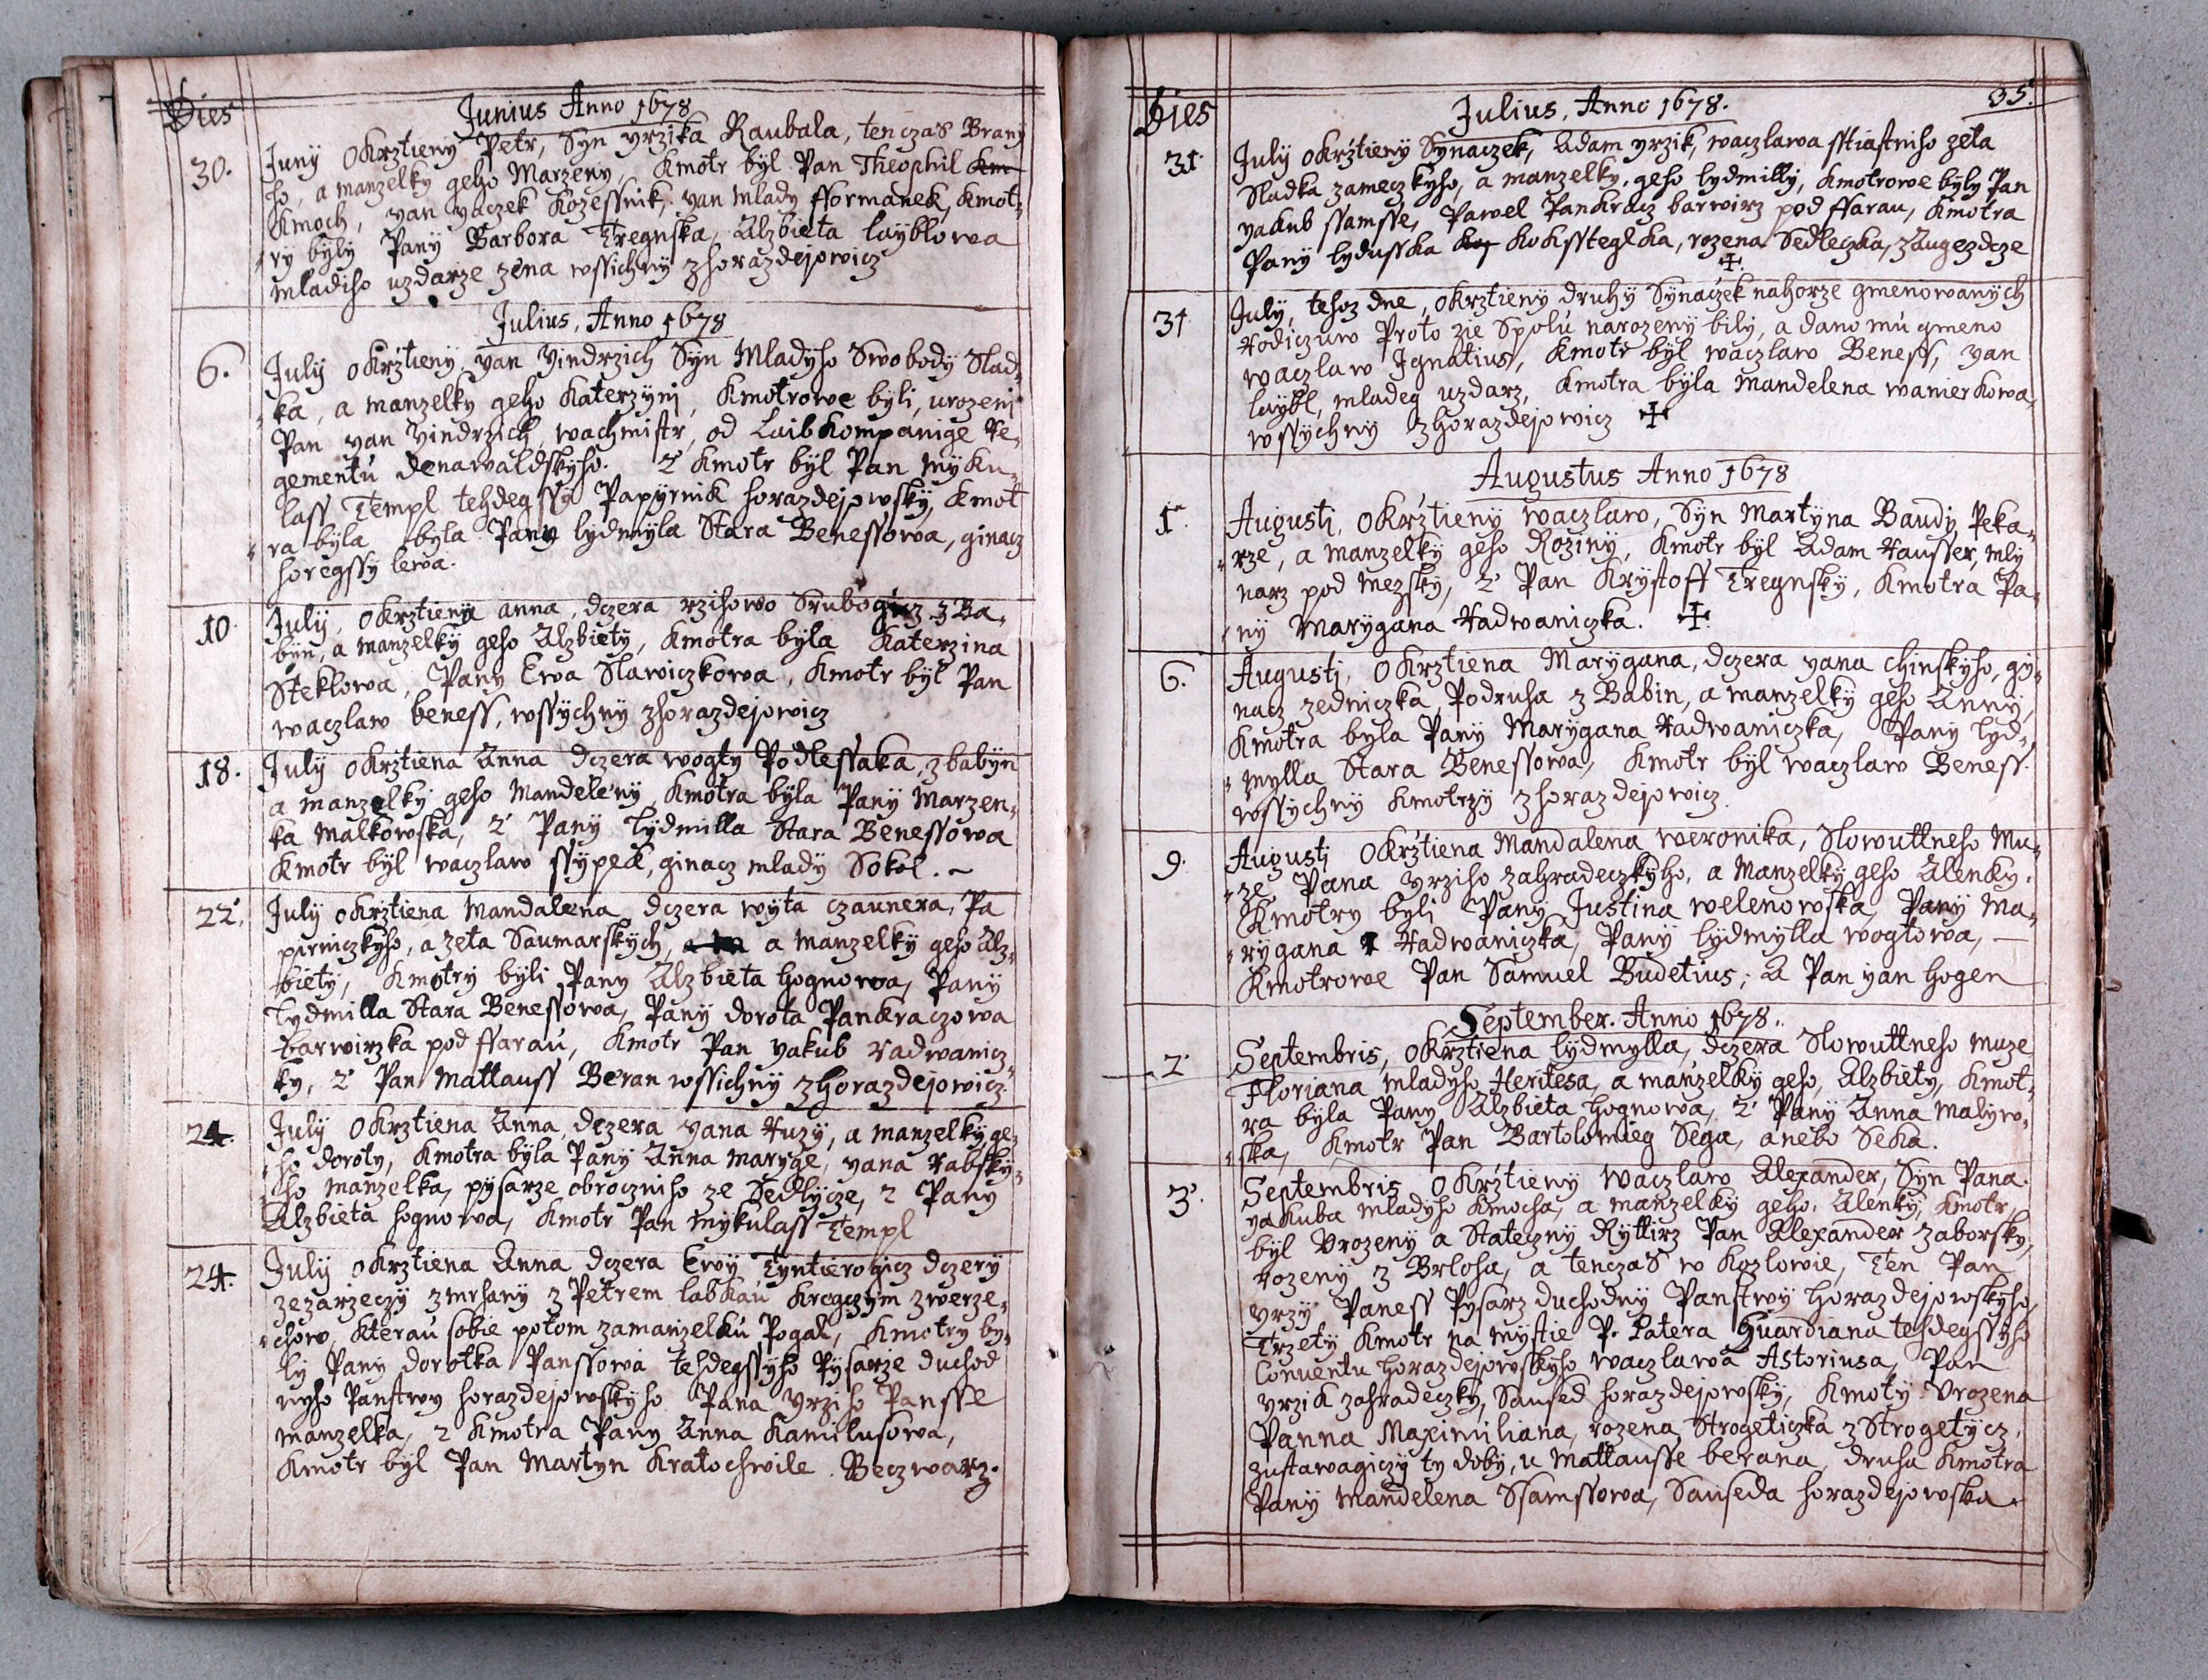 Dies
Junius Anno 1678
30. Juny okrztieny Petr, Syn yrzika Raubala, tenczas Brany
ho, a manzelky geho Marzeny, Kmotr byl Pan Theophil
Kmoch, yan vaczek Kozessnik, yan mlady fformanek, Kmot,
ry byly Pany Barbora Tregnska, Alzbieta layblowa
mladiho uzdarze zena wssichny zhorazdejowicz
Julius, Anno 1678
6. July okrztieny yan Yindrzich Syn Mladyho Swobody Slad,
ka, a manzelky geho Katerzyni, Kmotrowe byli, urozeni
Pan yan Yindrzich, wachmistr, od Laibkompanige Re,
gementu denawaldskyho. 2 Kmotr byl Pan myku,
lass Templ tehdegssy Papyrnik horazdejowsky, Kmot
ra byla byla Pany lydmyla Stara Benessowa, ginacz
horegssy lewa.
10. July, okrztieny anna, dczera rzihowo Srubogicz z Ba,
byn, a manzelky geho Alzbiety, Kmotra byla Katerzina
Steklowa, Pany Ewa Slawiczkowa, Kmotr byl Pan
waczlaw beness, wssychny zhorazdejowicz
18. July okrztiena Anna dczera wogty Podlessaka, z babyn
a manzelky geho Mandeleny Kmotra byla Pany Marzen,
ka Malkowska, 2 Pany lydmilla Stara Benessowa
Kmotr byl waczlaw ssypek, ginacz mlady Sokol.
22. July okrztiena Mandalena dczera wyta czaunera, Pa
pirniczkyho, a zeta Saumarskych, a manzelky geho Alz,
biety, Kmotry byli Pany Alzbieta hognowa, Pany
lydmilla Stara Benessowa, Pany dorota Pankraczowa
barwirzka pod ffarau, Kmotr Pan yakub radwanicz,
ky, 2 Pan Mattauss Beran wssichny zhorazdejowicz
24. July okrztiena Anna, dczera yana Huzy, a manzelky ge,
ho doroty, Kmotra byla Pany Anna maryge, yana rabsky,
ho manzelka, pysarze obroczniho ze Sedlycze, 2 Pany
Alzbieta hognowa, Kmotr Pan mykulass Templ
24. July okrztiena Anna dczera Ewy Tyntierogicz dczery
zezarzeczy zmrhany z Petrem labkau kregczym zwerze,
chow, kterau sobie potom zamanzelku Pogal, Kmotry by,
ly Pany dorotka Panssowa tehdegssyho Pysarze duchod
nyho Panstwy horazdejowskyho Pana yrziho Pansse
manzelka, 2 Kmotra Pany Anna Kamilusowa,
Kmotr byl Pan Martyn Kratochwile. Beczwarz.
Dies
Julius, Anno 1678.
35.
31. July okrztieny Synaczek, Adam yrzik, waczlawa sstiastniho zeta
Sladka zameczkyho, a manzelky, geho lydmilly, Kmotrowe byly Pan
yakub ssamsse, Pawel Pankracz barwirz pod ffarau, Kmotra
Pany lydusska Koksteglka, rozena Sedleczka, zaugezdcze
31 July, tehoz dne, okrztieny druhy Synaczek nahorze gmenowanych
Rodiczuw Proto zie Spolu narozeny bily, a dano mu gmeno
waczlaw Ignatius, Kmotr byl waczlaw Beness, yan
laybl, mladeg uzdarz, Kmotra byla mandelena wanierkowa,
wssychny zhorazdejowicz
Augustus Anno 1678
1. Augusti, okrztieny waczlaw, Syn Martyna Baudy Peka,
rze, a manzelky geho Roziny, Kmotr byl Adam Hausser, mly
narz pod mezsky, 2 Pan Krystoff Tregnsky, Kmotra Pa,
ny Marygana Radwaniczka.
6. Augusti, okrztiena Marygana, dczera yana Chinskyho, gy,
nacz zedniczka, Podruha z Babin, a manzelky geho Anny,
Kmotra byla Pany Marygana Radwaniczka, Pany lyd,
mylla Stara Benessowa, Kmotr byl waczlaw Beness.
wssychny Kmotrzy zhorazdejowicz.
9. Augusti okrztiena Mandalena weronika, Slowuttneho Mu,
ze Pana yrziho zahradeczkyho, a Manzelky geho Alenky.
Kmotry byli Pany Justina welenowska, Pany Ma,
rygana Radwaniczka, Pany lydmylla wogtowa,
Kmotrowe Pan Samuel Budetius; A Pan yan hogen
September. Anno 1678.
2. Septembris, okrztiena lydmylla, dczera Slowuttneho muze
Floriana mladyho Heritesa, a manzelky geho, Alzbiety, Kmot,
ra byla Pany Alzbieta hognowa, 2 Pany Anna malyw,
ska, Kmotr Pan Bartolomieg Sega, anebo Seka.
3. Septembris okrztieny waczlaw Alexander, Syn Pana
yakuba mladyho Kmocha, a manzelky geho, Alenky, Kmotr
byl Vrozeny a Stateczny Rytirz Pan Alexander zaborsky,
rozeny z Brloha, a tenczas w Kozlowie, Ten Pan
yrzy Paness Pysarz duchodny Panstwy horazdejowskyho,
Trzety Kmotr na mystie P. Patera Guardiana tehdegssyho
Conuentu horazdejowskyho waczlawa Astoriusa, Pan
yrzik zahradeczky, Saused horazdejowsky, Kmoty Vrozena
Panna Maximiliana, rozena Strogeticzka z Strogetycz,
zustawagiczy ty doby, u mattausse berana, druha Kmotra
Pany mandelena Ssamssowa, Sauseda horazdejowska.